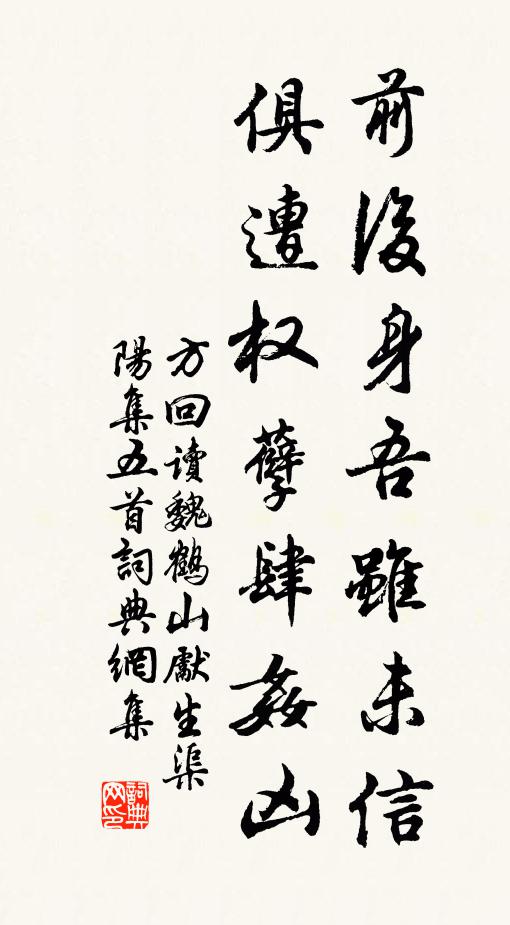 前後身吾雖未信
俱遭权孽肆姦凶
方回讀魏鶴山獻生渠
陽集五首詞典網集
詞典网印